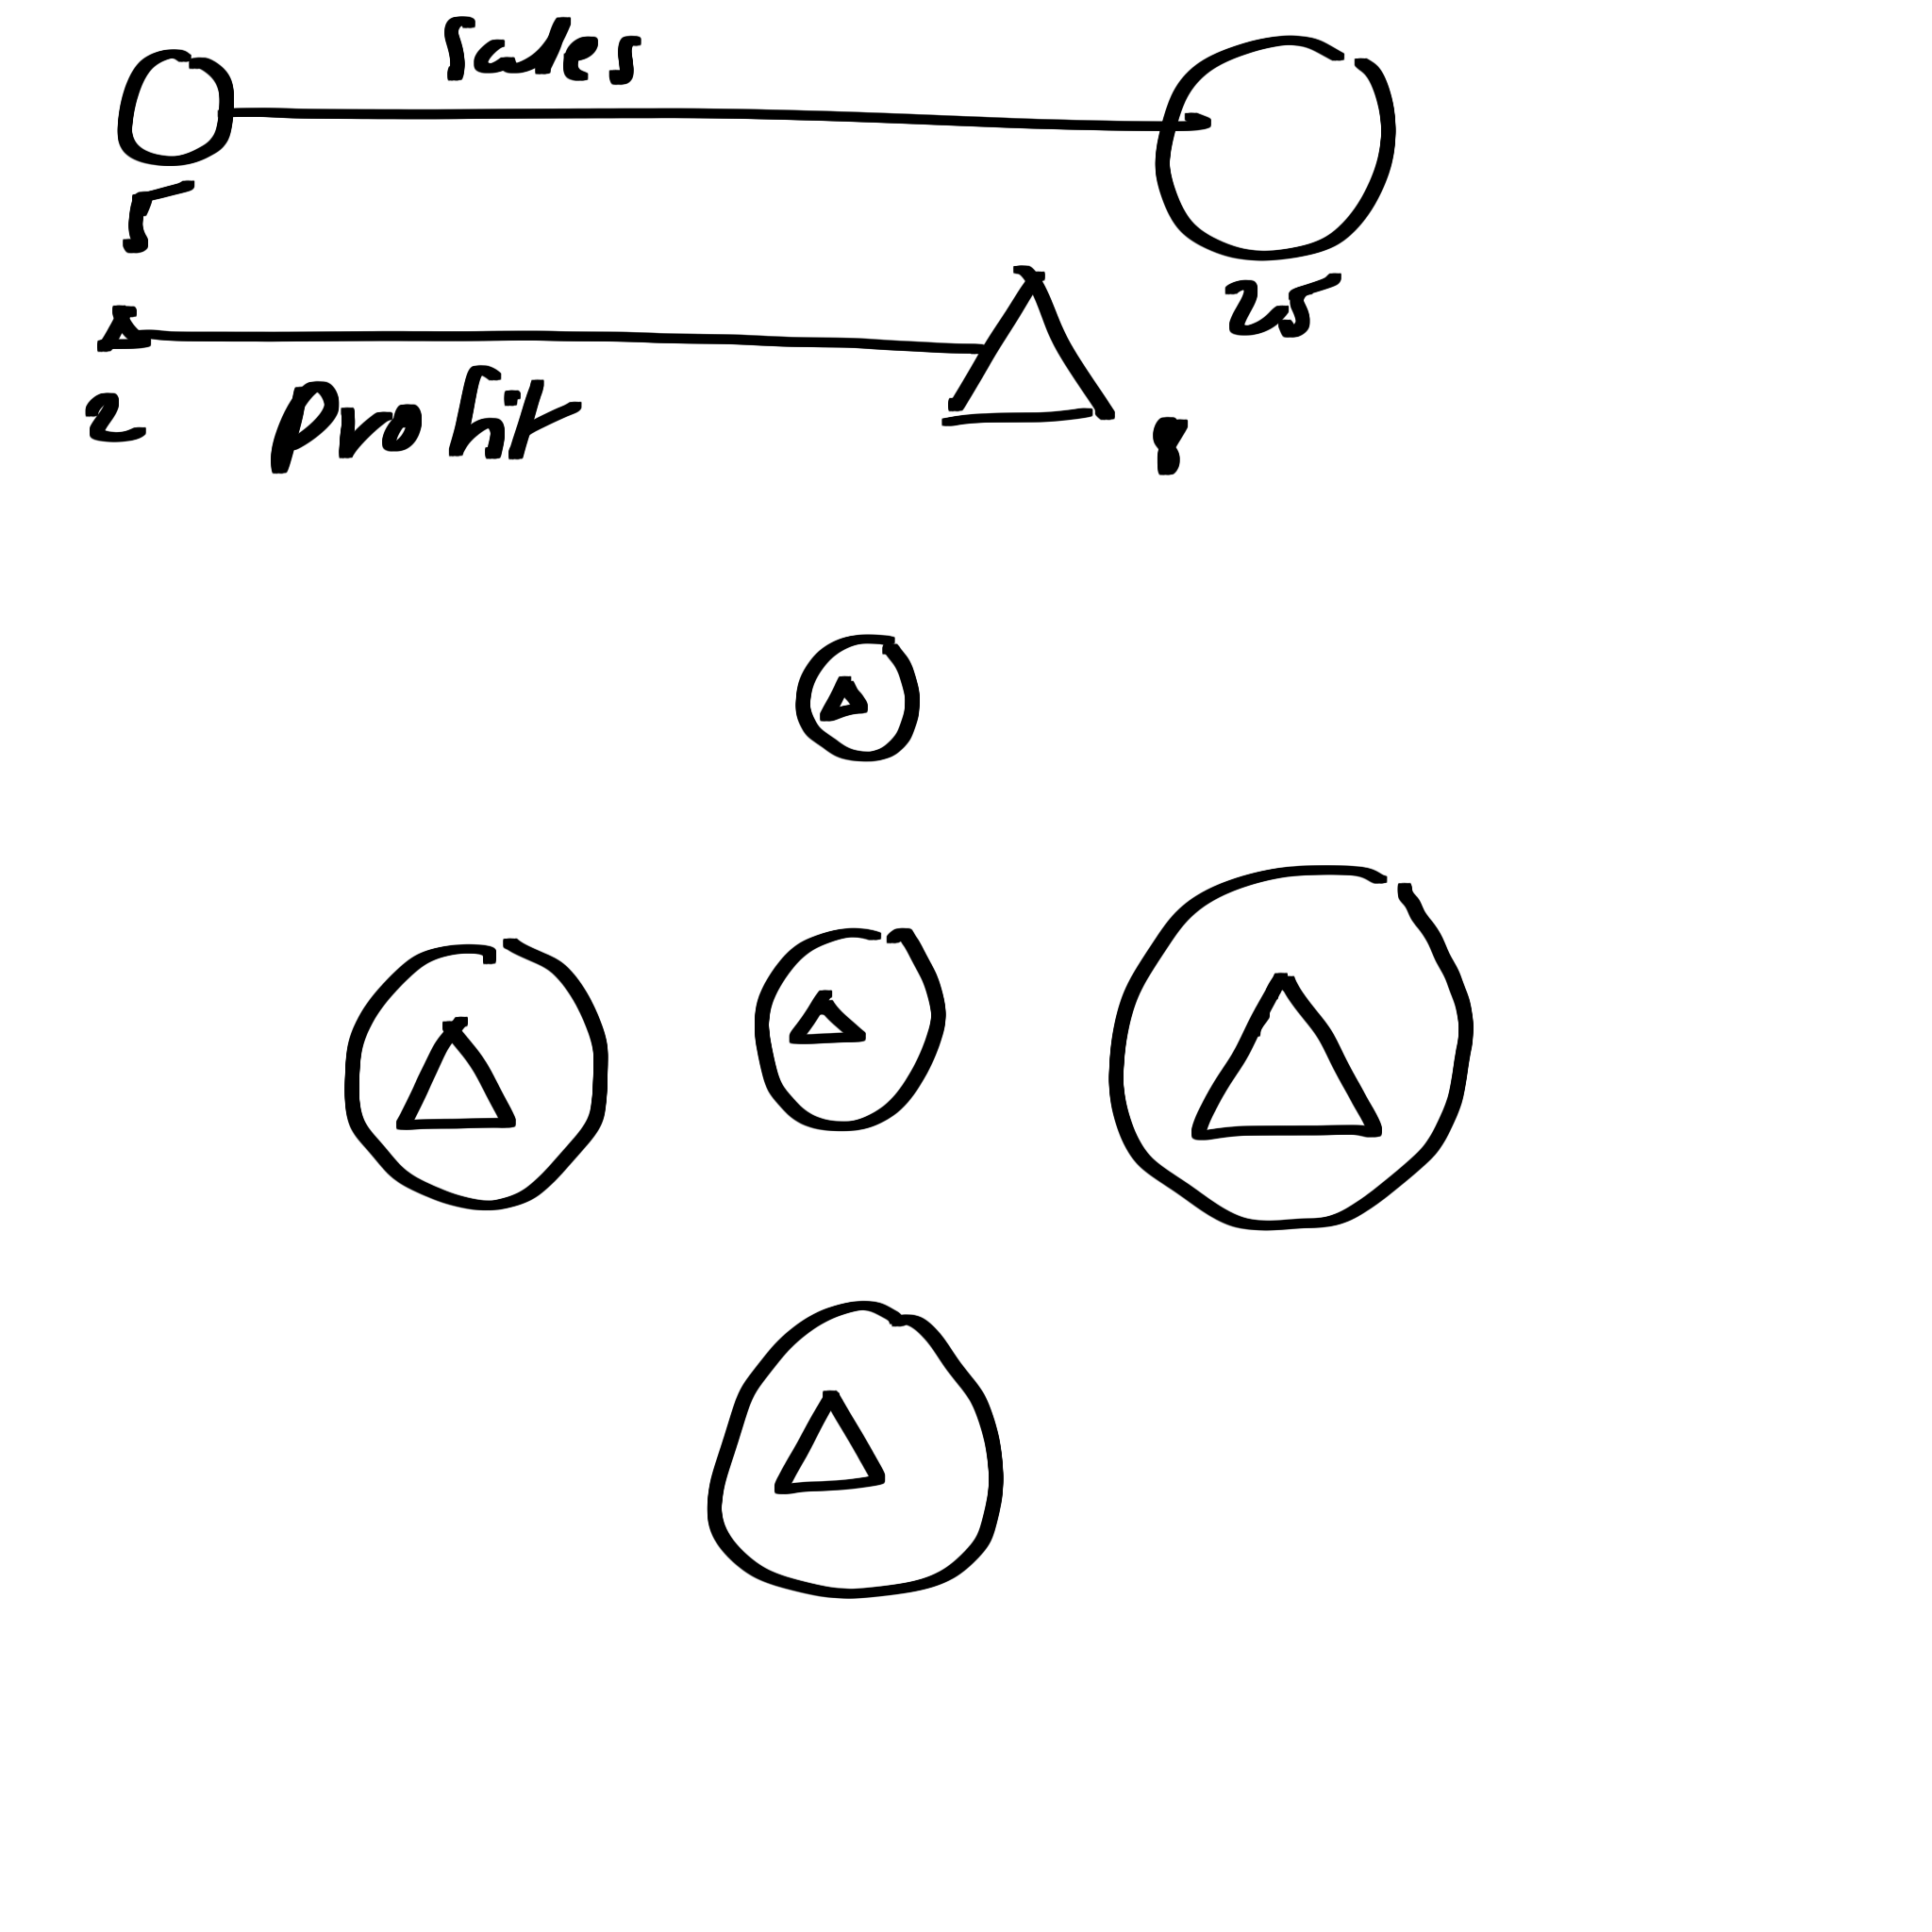 Sales
5
25
2
profit
8